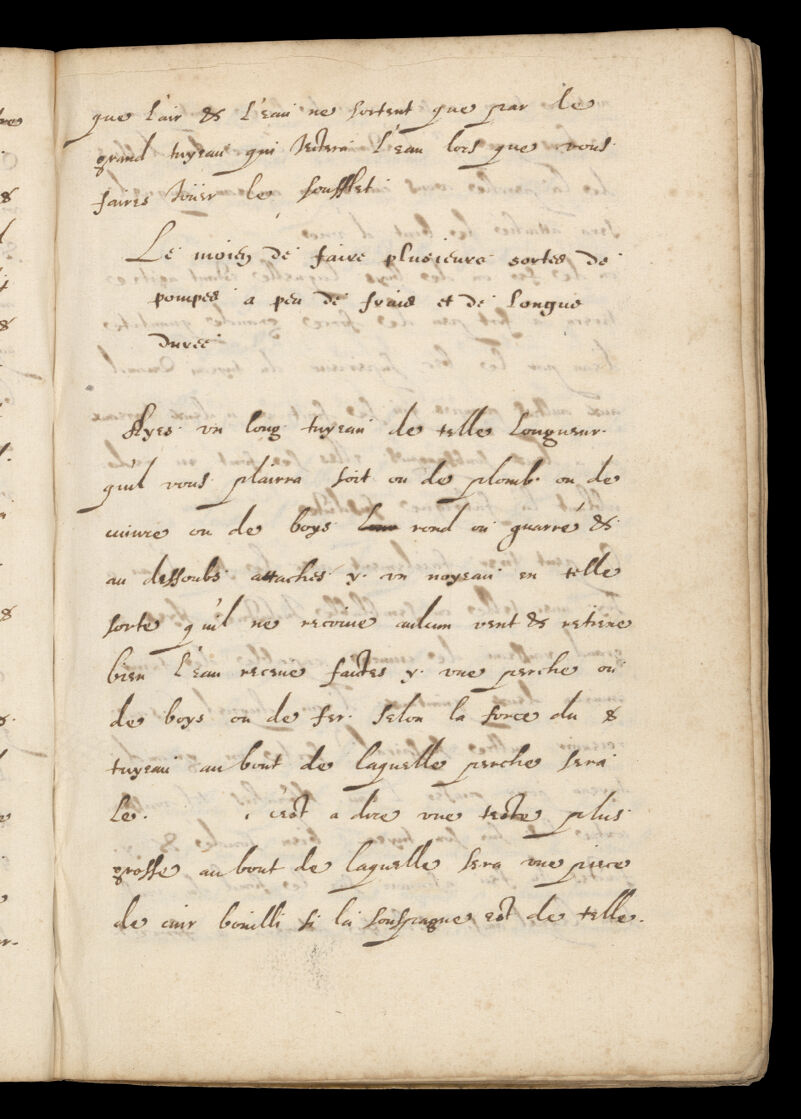 que l'air & l'eau ne sortent que par le
grand tuyeau qui jectera l'eau lors que vous
faires joüer le soufflet
Le moien de faire plusieurs sortes de
pompes a peu de frais et de longue
duree
Ayes vn long tuyeau de telle longueur
quil vous plairra soit ou de plomb ou de
cuivre ou de boys rond ou quarré &
au dessoubs attaches y vn noyeau en telle
sorte quil ne recoive aulcun vent & retiene
bien l'eau receue faictes y vne perche ou
de boys ou de fer selon la force du &
tuyeau au bout de laquelle perche sera
le. c'est a dire vne teste plus
grosse au bout de laquelle sera vne piece
de cuir bouilli si la souspague est de telle